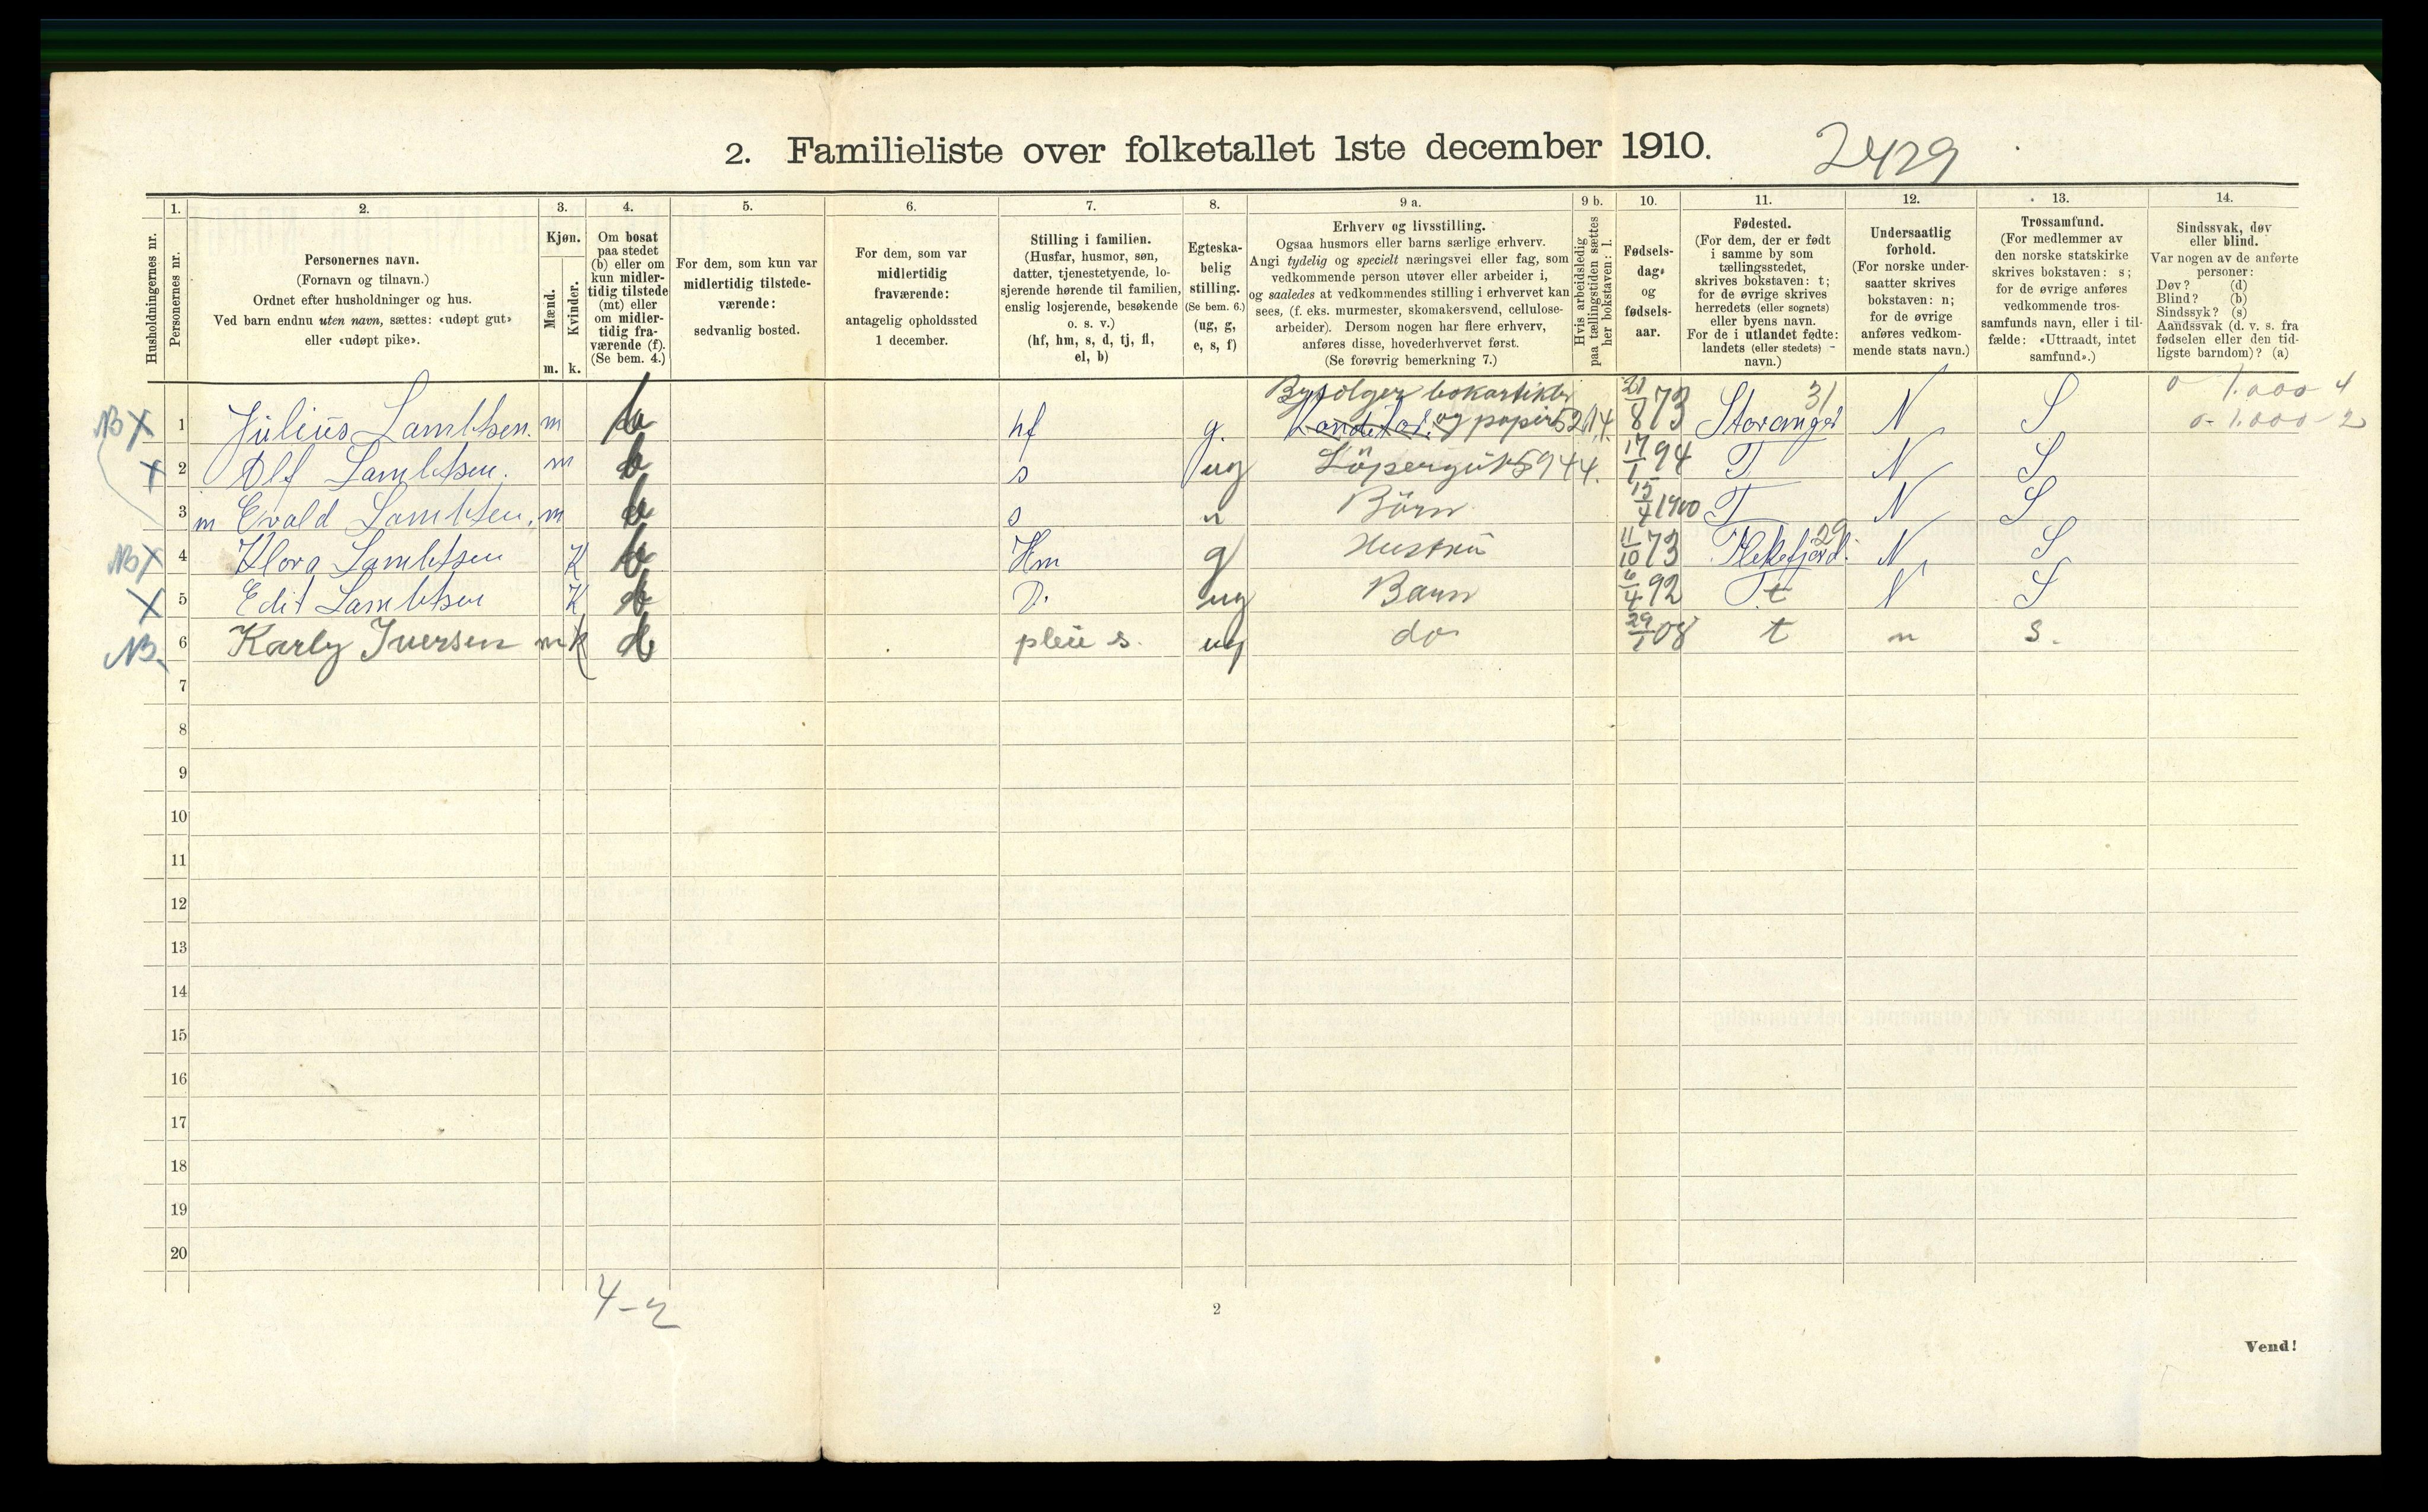 2. Familieliste over folketallet 1ste december 1910.
2429
1. 2. 3. 4. 5. 6. 7. 8. 9 a. 9 b. 10. 11. 12. 13. 14.
Husholdningernes nr.
Personernes nr.
Personernes navn.
(Fornavn og tilnavn.)
Ordnet efter husholdninger og hus.
Ved barn endnu uten navn, sættes: «udøpt gut»
eller «udøpt pike».
Kjøn.
Mænd.
Kvinder.
m. k.
Om bosat
paa stedet
(b) eller om
kun midler-
tidig tilstede
(mt) eller
om midler-
tidig fra-
værende (f).
(Se bem. 4.)
For dem, som kun var
midlertidig tilstede-
værende:
sedvanlig bosted.
For dem, som var
midlertidig
fraværende:
antagelig opholdssted
1 december.
Stilling i familien.
(Husfar, husmor, søn,
datter, tjenestetyende, lo-
sjerende hørende til familien,
enslig losjerende, besøkende
o. s. v.)
(hf, hm, s, d, tj, fl,
el, b)
Egteska-
belig
stilling.
(Se bem. 6.)
(ug, g,
e, s, f)
Erhverv og livsstilling.
Ogsaa husmors eller barns særlige erhverv.
Angi tydelig og specielt næringsvei eller fag, som
vedkommende person utøver eller arbeider i,
og saaledes at vedkommendes stilling i erhvervet kan
sees, (f. eks. murmester, skomakersvend, cellulose-
arbeider). Dersom nogen har flere erhverv,
anføres disse, hovederhvervet først.
(Se forøvrig bemerkning 7.)
Hvis arbeidsledig
paa tællingstiden sættes
her bokstaven: l.
Fødsels-
dag
og
fødsels-
aar.
Fødested.
(For dem, der er født
i samme by som
tællingsstedet,
skrives bokstaven: t;
for de øvrige skrives
herredets (eller sognets)
eller byens navn.
For de i utlandet fødte:
landets (eller stedets)
navn.)
Undersaatlig
forhold.
(For norske under-
saatter skrives
bokstaven: n;
for de øvrige
anføres vedkom-
mende stats navn.)
Trossamfund.
(For medlemmer av
den norske statskirke
skrives bokstaven: s;
for de øvrige anføres
vedkommende tros-
samfunds navn, eller i til-
fælde: «Uttraadt, intet
samfund».)
Sindssvak, døv
eller blind.
Var nogen av de anførte
personer:
Døv? (d)
Blind? (b)
Sindssyk? (s)
Aandssvak (d. v. s. fra
fødselen eller den tid-
ligste barndom)? (a)
Bysælger bokartikler 31 0 1.000 4
NB X 1 Julius Lambtsen. m b hf g. Konditor. og papir 5214. 21/8 73 Stavanger N S 0-1.000-2
X 2 Olf Lambtsen. m b s ug Löpergut 5944. 17/1 94 T N S
3 m Evald Lambtsen. m b s u Börn 15/4 1900 T N S
NB X 4 Flora Lambtsen K b Hm g Hustru 11/10 73 Flekefjord. 29 N S
X 5 Edit Lambtsen K b D. ug Barn 6/4 92 T t N S
NB. 6 Karly Iversen m k b pleie s. ug do 29/1 08 t n s.
7
8
9
10
11
12
13
14
15
16
17
18
19
20
4-2
2
Vend!